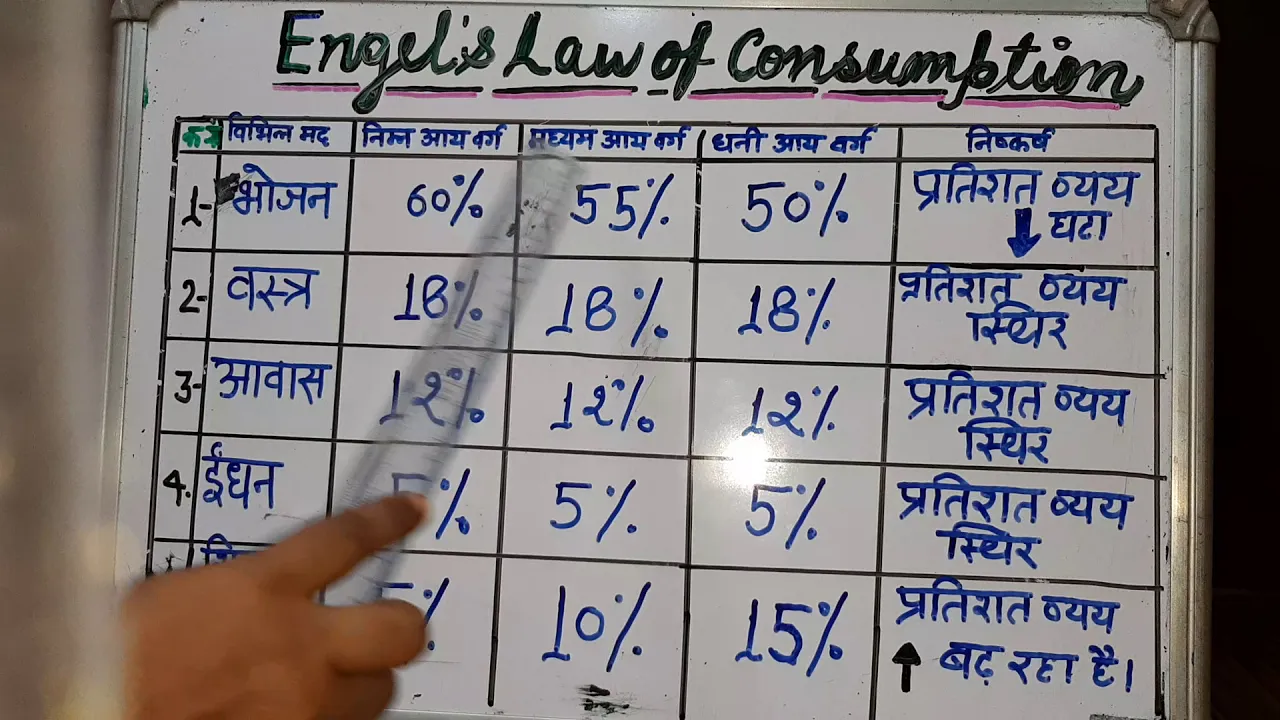 Engel's Law of Consumption
विभिन्न मद निम्न आय वर्ग मध्यम आय वर्ग धनी आय वर्ग निष्कर्ष
1- भोजन 60% 55% 50% प्रतिशत व्यय
घटा
2- वस्त्र 18% 18% 18% प्रतिशत व्यय
स्थिर
3- आवास 12% 12% 12% प्रतिशत व्यय
स्थिर
4. ईंधन 5% 5% 5% प्रतिशत व्यय
स्थिर
10% 15% प्रतिशत व्यय
बढ़ रहा है।